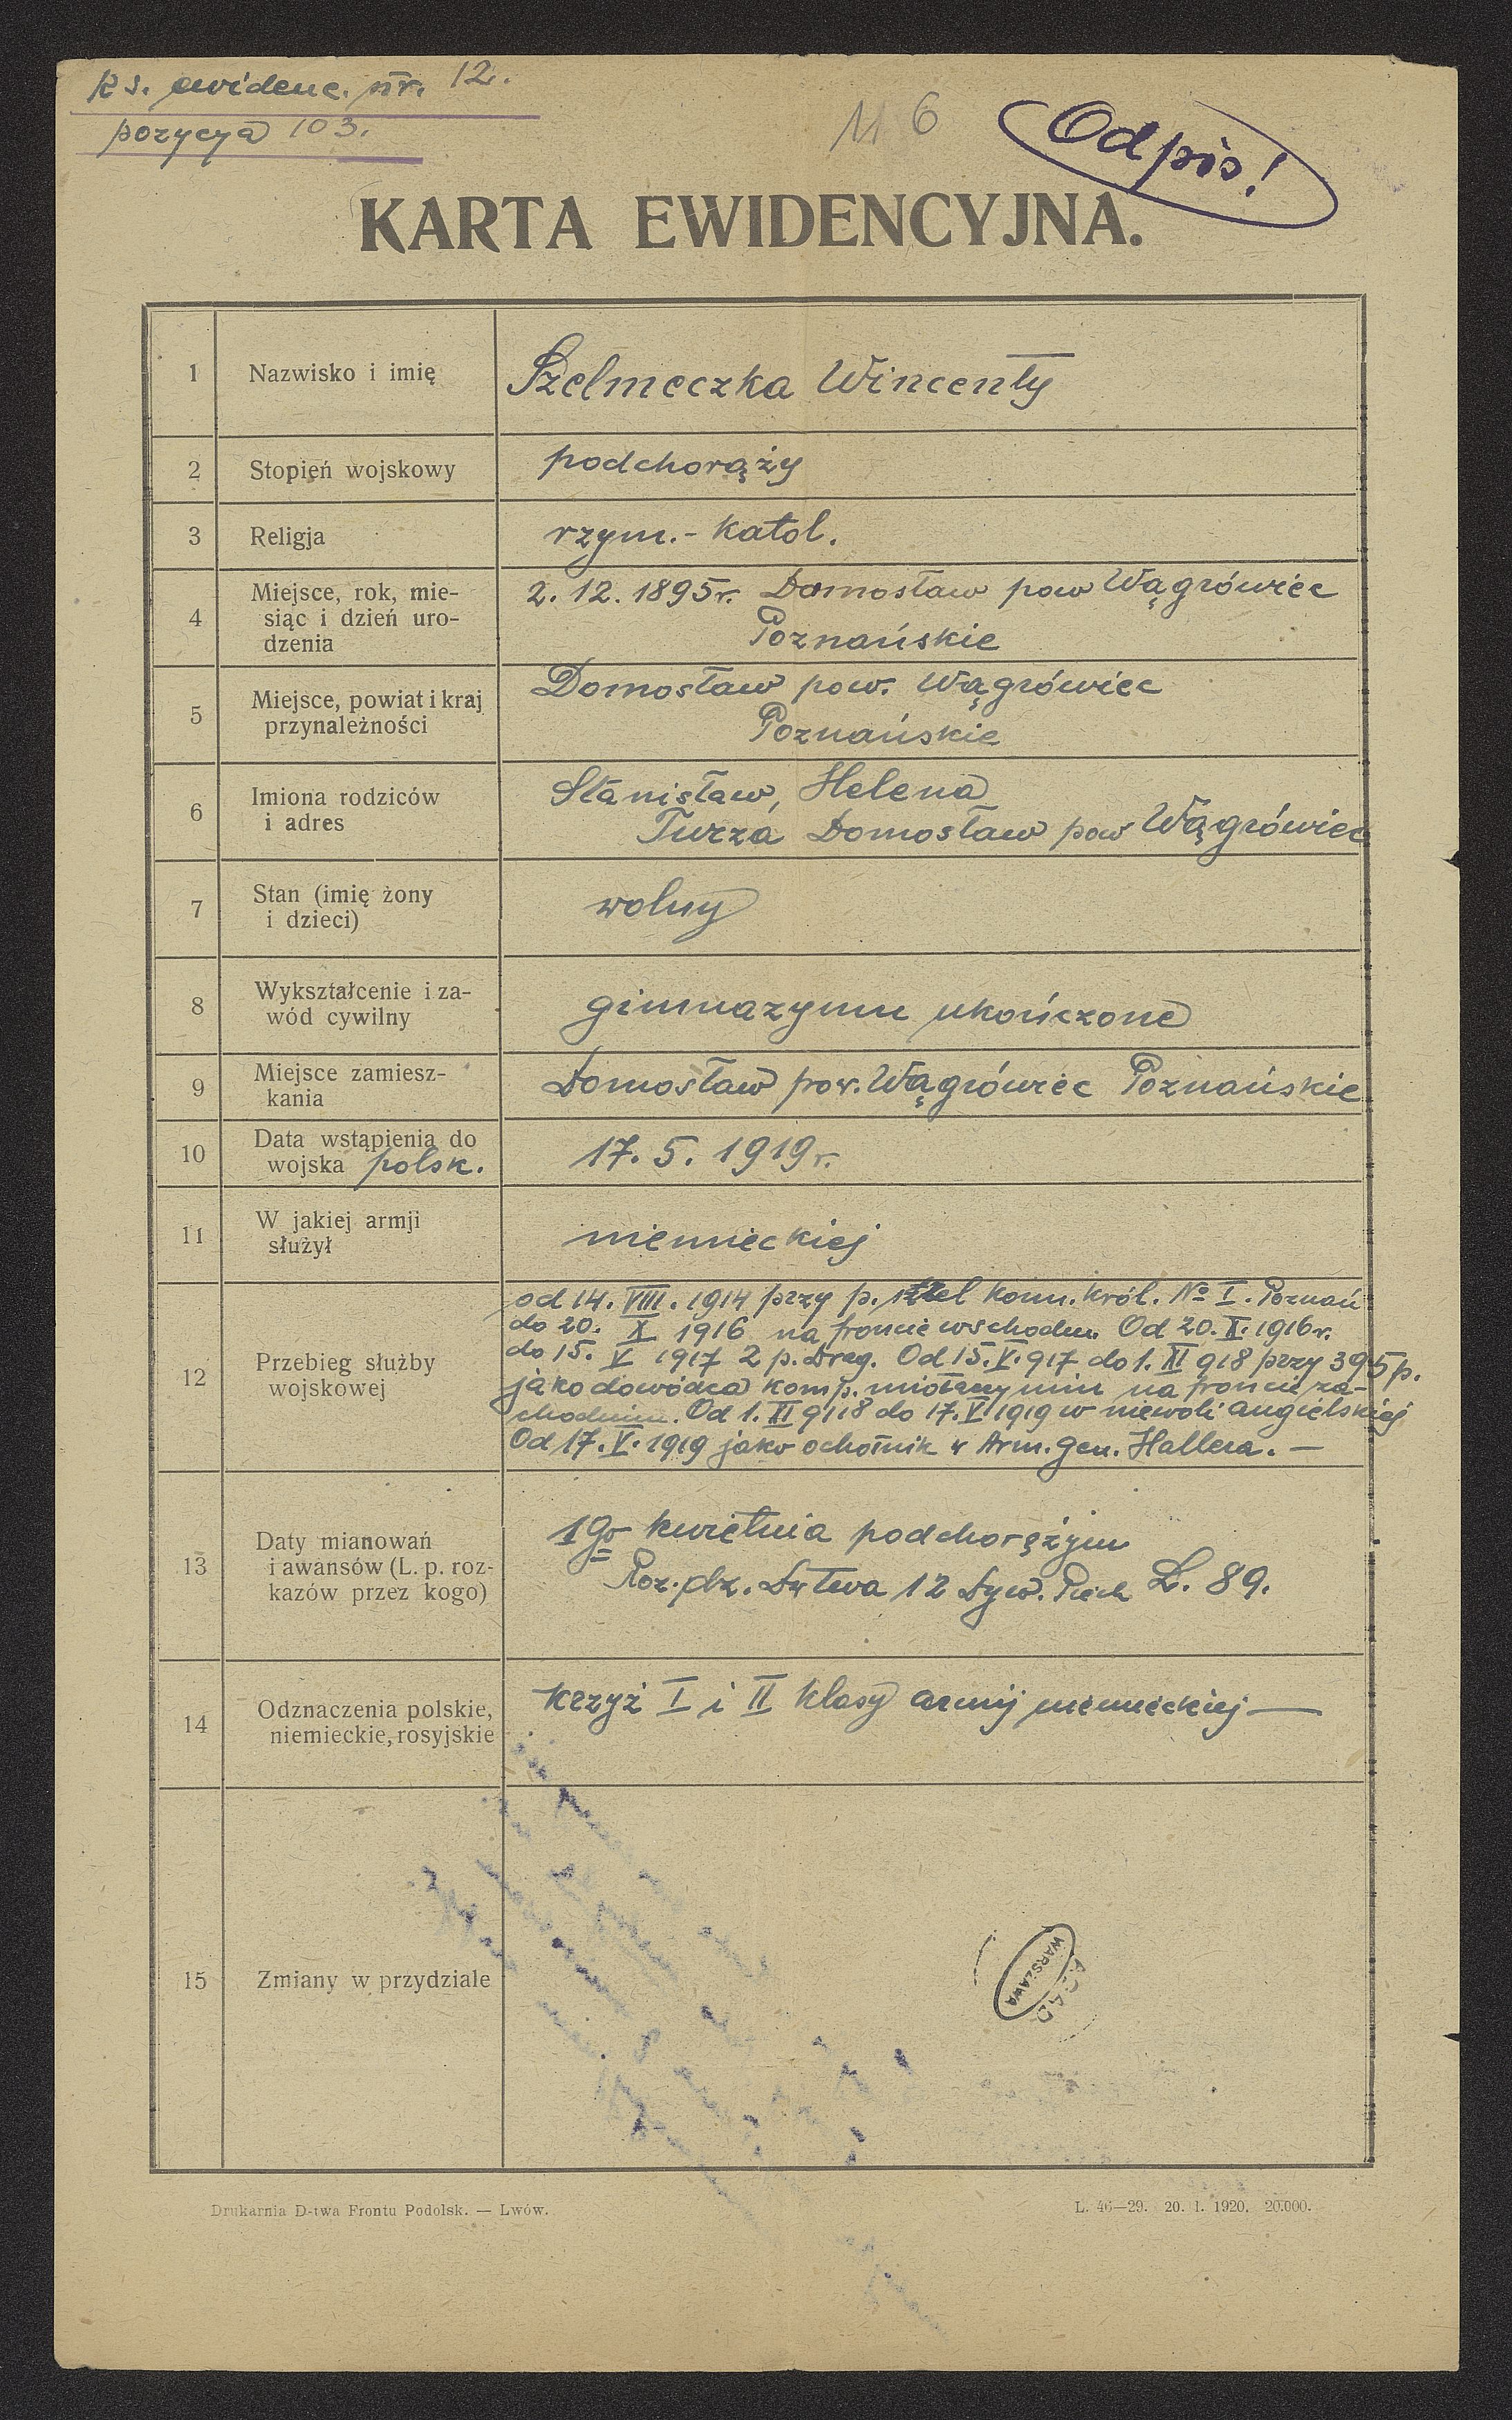 ks. ewidenc. nr. 12.
pozycya 103.
116
Odpis!
KARTA EWIDENCYJNA.
1 Nazwisko i imię Szelmeczka Wincenty
2 Stopień wojskowy podchorąży
3 Religja rzym.- katol.
4 Miejsce, rok, mie-
siąc i dzień uro-
dzenia
2. 12. 1895r. Domosław pow Wągrówiec
Poznańskie
5 Miejsce, powiat i kraj
przynależności
Domosław pow. Wągrówiec
Poznańskie
6 Imiona rodziców
i adres
Stanisław, Helena
Turza Domosław pow Wągrówiec
7 Stan (imię żony
i dzieci)
wolny
8 Wykształcenie i za-
wód cywilny
gimnazyum ukończone
9 Miejsce zamiesz-
kania
Domosław pow. Wągrówiec Poznańskie
10 Data wstąpienia do
wojska polsk.
17. 5. 1919 r.
11 W jakiej armji
służył
niemieckiej
12 Przebieg służby
wojskowej
od 14. VIII. 1914 przy p. strzel konn. król. No I. Poznań
do 20. X 1916 na froncie wschodn. Od 20. X. 1916 r.
do 15. V 1917 2 p. Drag. Od 15. V. 917 do 1. XI 918 przy 395 p.
jako dowódca komp. miotaczy min na froncie za-
chodnim. Od 1. XI 9118 do 17. V 1919 w niewoli angielskiej
Od 17. V. 1919 jako ochotnik w Arm. gen. Hallera. —
13 Daty mianowań
i awansów (L. p. roz-
kazów przez kogo)
1go kwietnia podchorążym
Roz. dz. Dctwa 12 Dyw. Piech L. 89.
14 Odznaczenia polskie,
niemieckie, rosyjskie
krzyż I i II klasy armij niemieckiej —
15 Zmiany w przydziale
A.G.A.D.
WARSZAWA
Drukarnia D-twa Frontu Podolsk. — Lwów.
L. 46—29. 20. 1. 1920. 20.000.